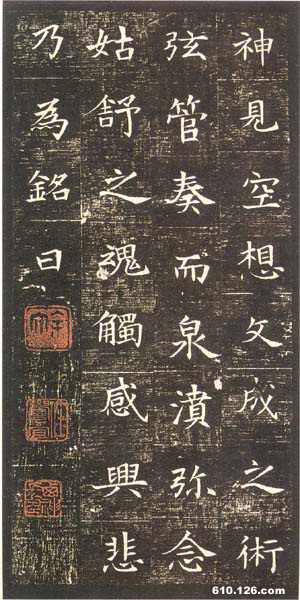 神見空想文成之術
弦管奏而泉濆弥念
姑舒之魂觸感興悲
乃為銘曰
610.126.com